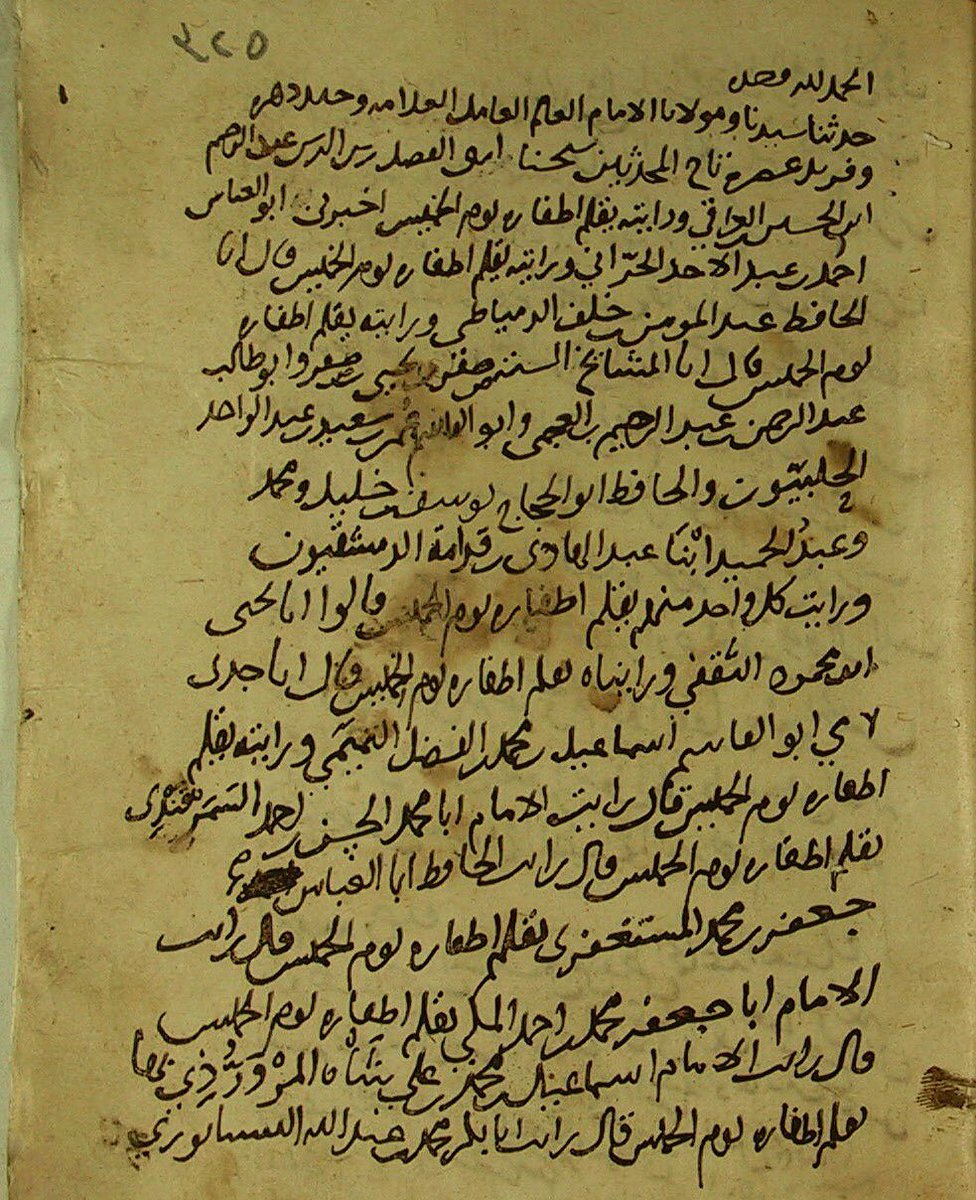 ٣٢٥
الحمد لله
حدثنا سيدنا ومولانا الامام العالم العامل العلامه وحيد دهره
وفريد عصره تاج المحدثين شيخنا ابو الفضل زين الدين عبد الرحيم
ابن الحسين العراقي ورايته يقلم اظفاره يوم الخميس اخبرني ابو العباس
احمد بن عبد الاحد الحرّاني ورايته يقلم اظفاره يوم الخميس قال انا
الحافظ عبد المومن بن خلف الدمياطي ورايته يقلم اظفاره
يوم الخميس قال انا المشائخ صقر بن يحيى بن صقر وابو طالب
عبد الرحمن بن عبد الرحيم بن العجمي وابو محمد بن سعيد بن عبد الواحد
الحلبيّون والحافظ ابو الحجاج يوسف بن خليل ومحمد
وعبدُ الحميد ابْنَا عبد الهادي بن قدامة الدمشقيون
ورايت كل واحد منهم يقلم اظفاره يوم الخميس قالوا انا يحيى
ابن محمود الثقفي ورايناه يقلم اظفاره يوم الخميس قال انا جدى
لامي ابو القاسم اسماعيل بن محمد بن الفضل التيمي ورايته يقلم
اظفاره يوم الخميس قال رايت الامام ابا محمد الحسن بن احمد السَمَرْقَنْدِى
يقلم اظفاره يوم الخميس قال رايت الحافظ ابا العباس
جعفر بن محمد المستغفرى يقلم اظفاره يوم الخميس قال رايت
الامام ابا جعفر محمد بن احمد المكي يقلم اظفاره يوم الخميس
قال رايت الامام اسماعيل بن محمد بن علي بن شَاه المَرْوَرُّذِي بها
يقلم اظفاره يوم الخميس قال رايت ابا بكر محمد بن عبد الله النيسابوري